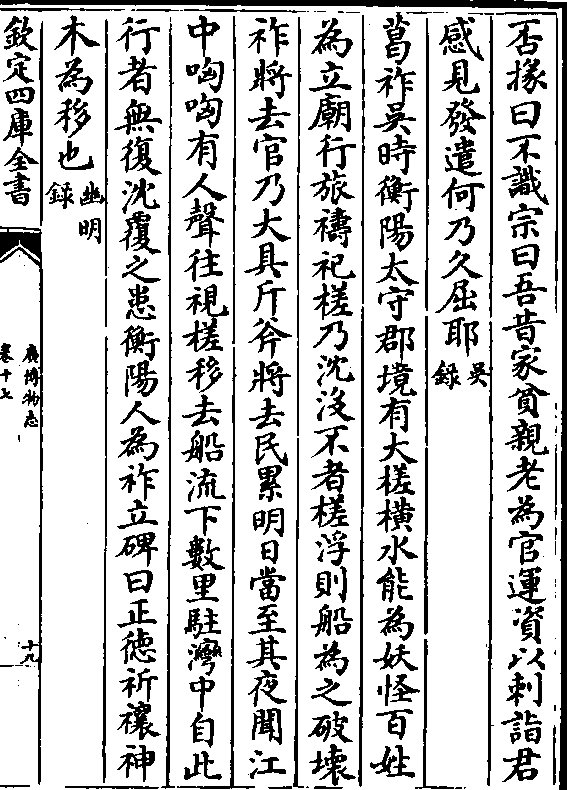 否掾曰不識宗曰吾昔家貧親老為官運資以刺詣君
感見發遣何乃久屈耶吳録
葛祚吳時衡陽太守郡境有大槎橫水能為妖怪百姓
為立廟行旅禱祀槎乃沈没不者槎浮則船為之破壞
祚將去官乃大具斤斧將去民累明日當至其夜聞江
中啕啕有人聲往視槎移去船流下數里駐灣中自此
行者無復沈覆之患衡陽人為祚立碑曰正徳祈禳神
木為移也幽明録
欽定四庫全書
廣博物志
卷十七
十九